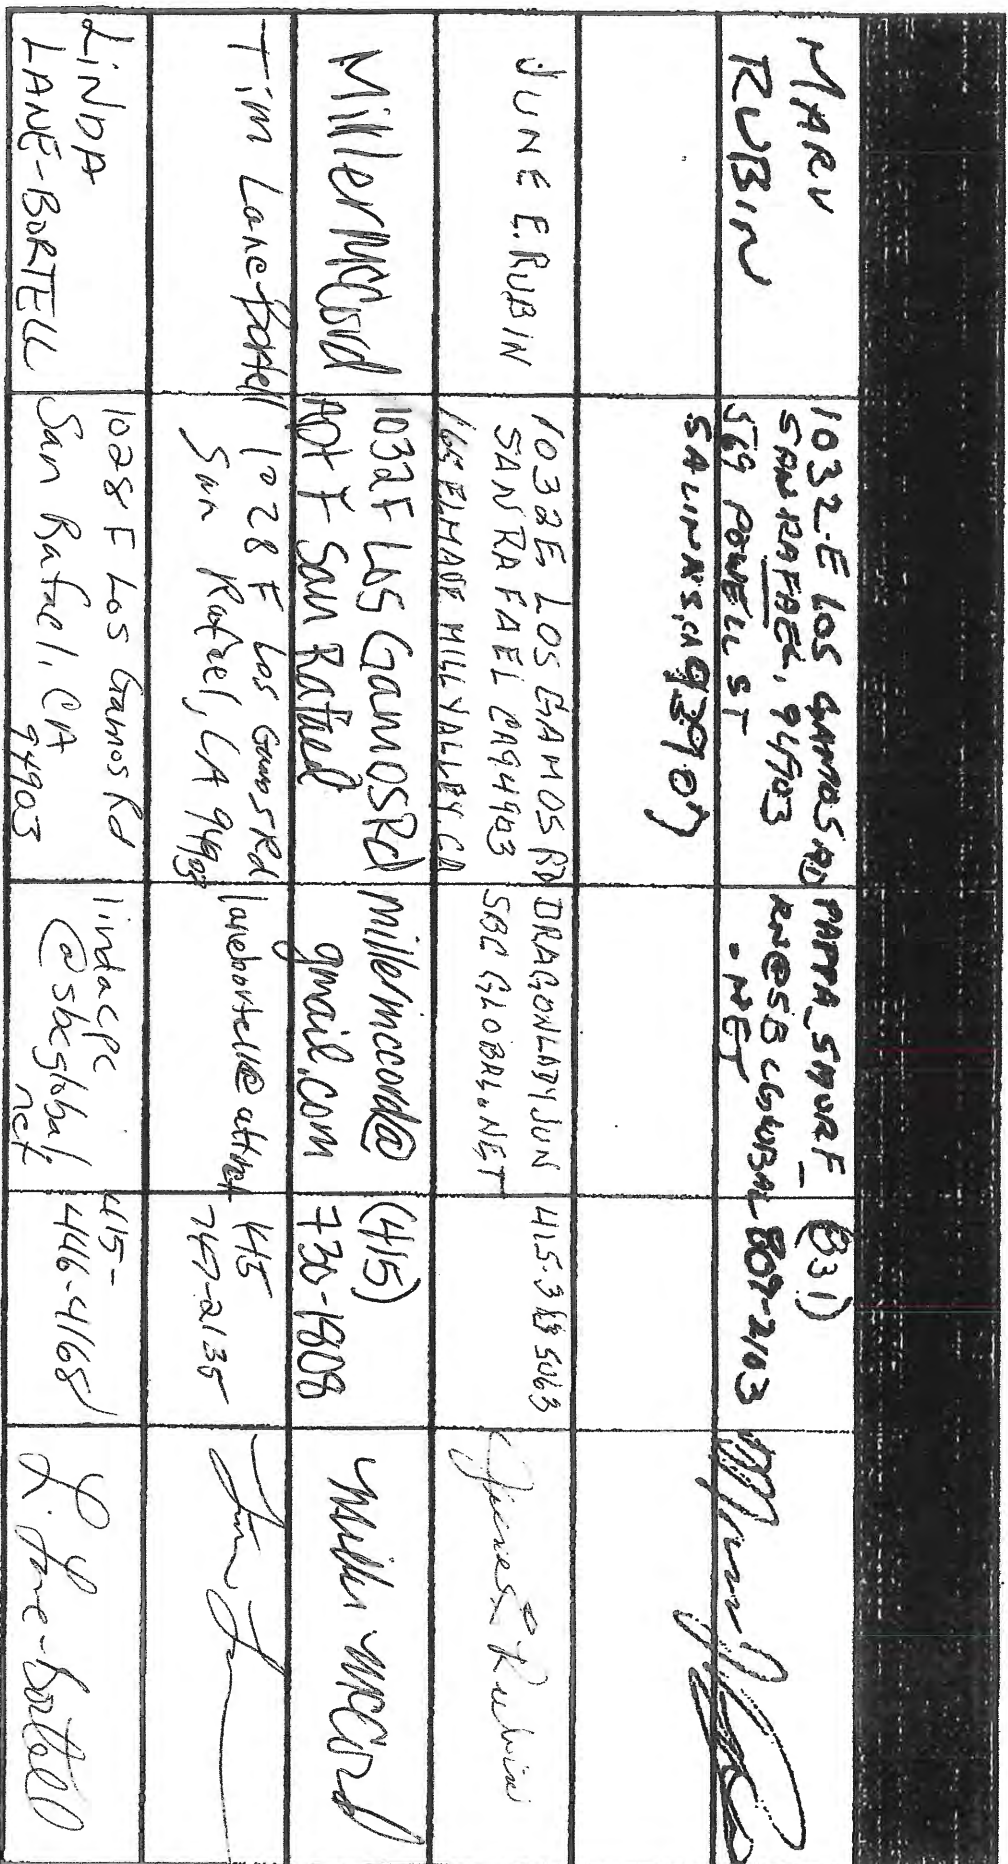 MARV
RUBIN
1032-E LOS GAMOS RD
SAN RAFAEL, 94903
569 POWELL ST
SALINAS, CA 93907
PAPPA_SMURF_
RN@SBCGLOBAL
.NET
(831)
809-2103
JUNE E. RUBIN
1032E LOS GAMOS RD
SAN RAFAEL CA94903
MILL VALLEY, CA
DRAGONLADYJUN
SBCGLOBAL.NET
Miller McCord
1032F Los Gamos Rd
Apt F San Rafael
millermccord@
gmail.com
(415)
730-1808
Miller McCord
Tim Lane-Bortell
1028 F Los Gamos Rd
San Rafael, CA 94903
lanebortell@att.net
415
747-2135
LINDA
LANE-BORTELL
1028 F Los Gamos Rd
San Rafael, CA
94903
lindacpc
@sbcglobal.
net
415-
446-4168
L. Lane-Bortell